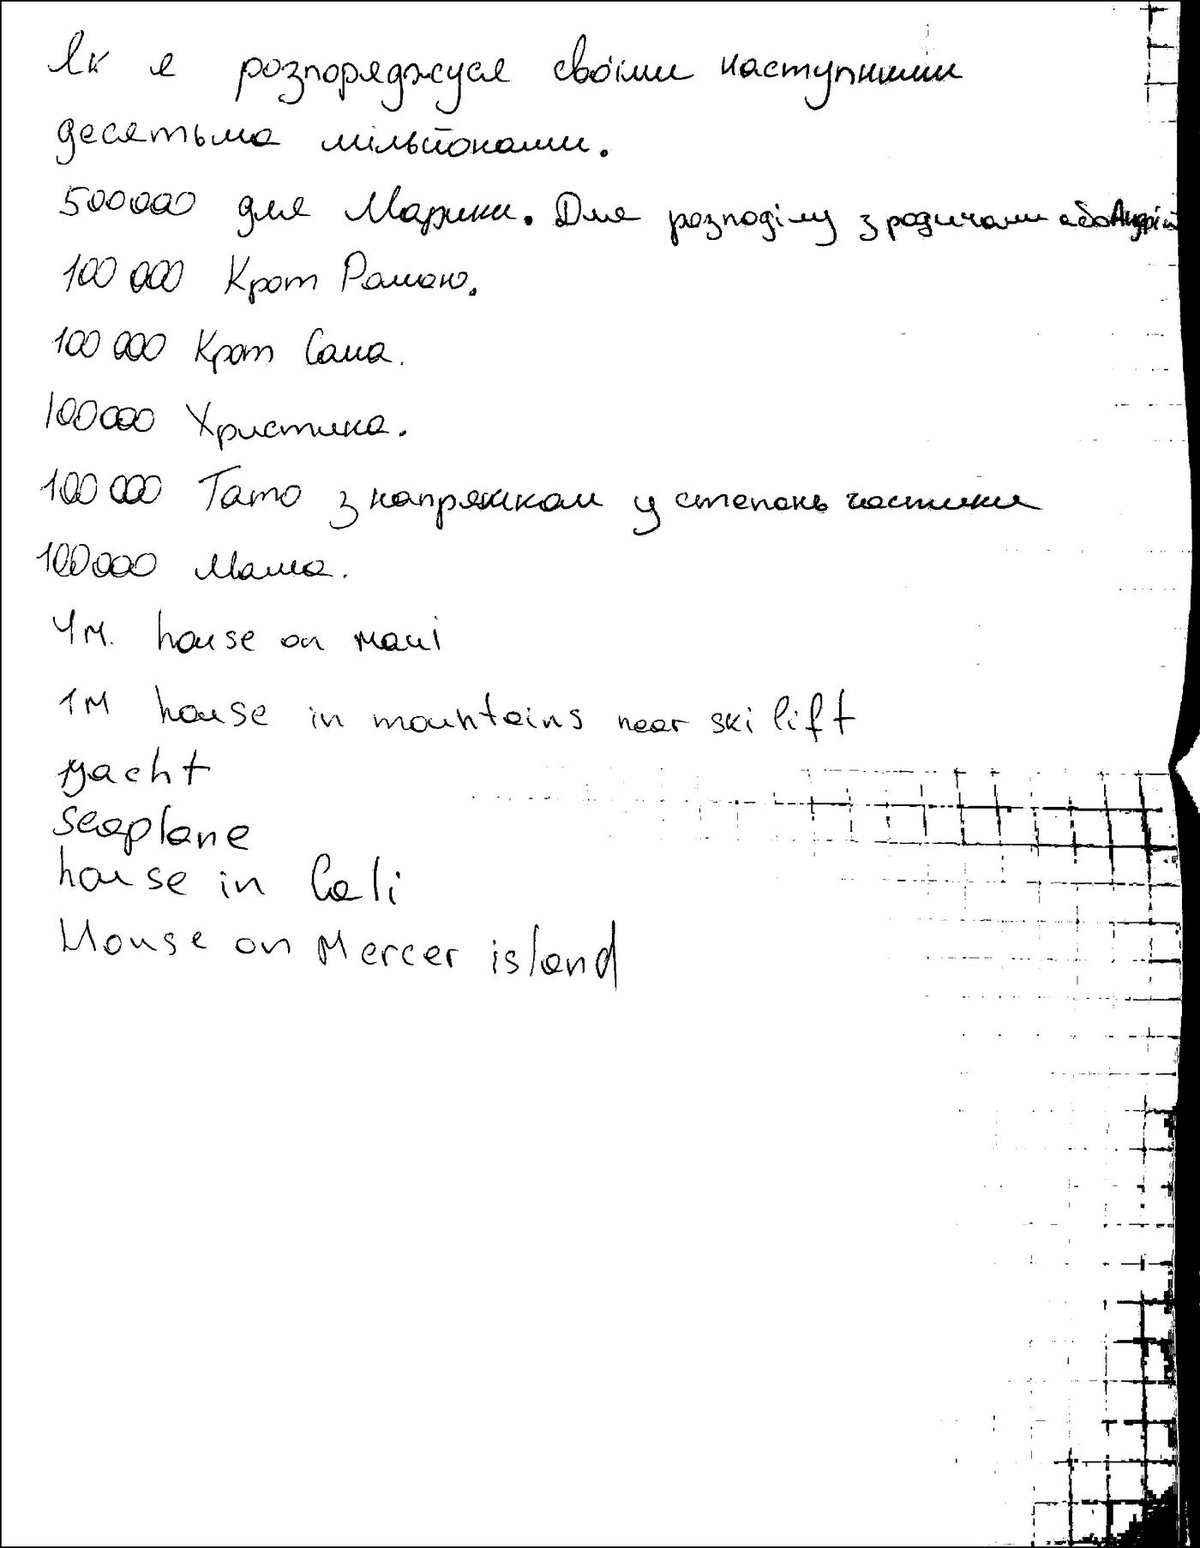 Як я розпоряджуся своїми наступними
десятьма мільйонами.
500000 для Марини. Для розподілу з родичами або Андрій
100 000 Крот Роман.
100 000 Крот Саша.
100000 Христина.
100 000 Тато з напрямком у степень частини
100000 Мама.
4м. house on maui
1м house in mountains near ski lift
yacht
seaplane
house in Cali
House on Mercer island